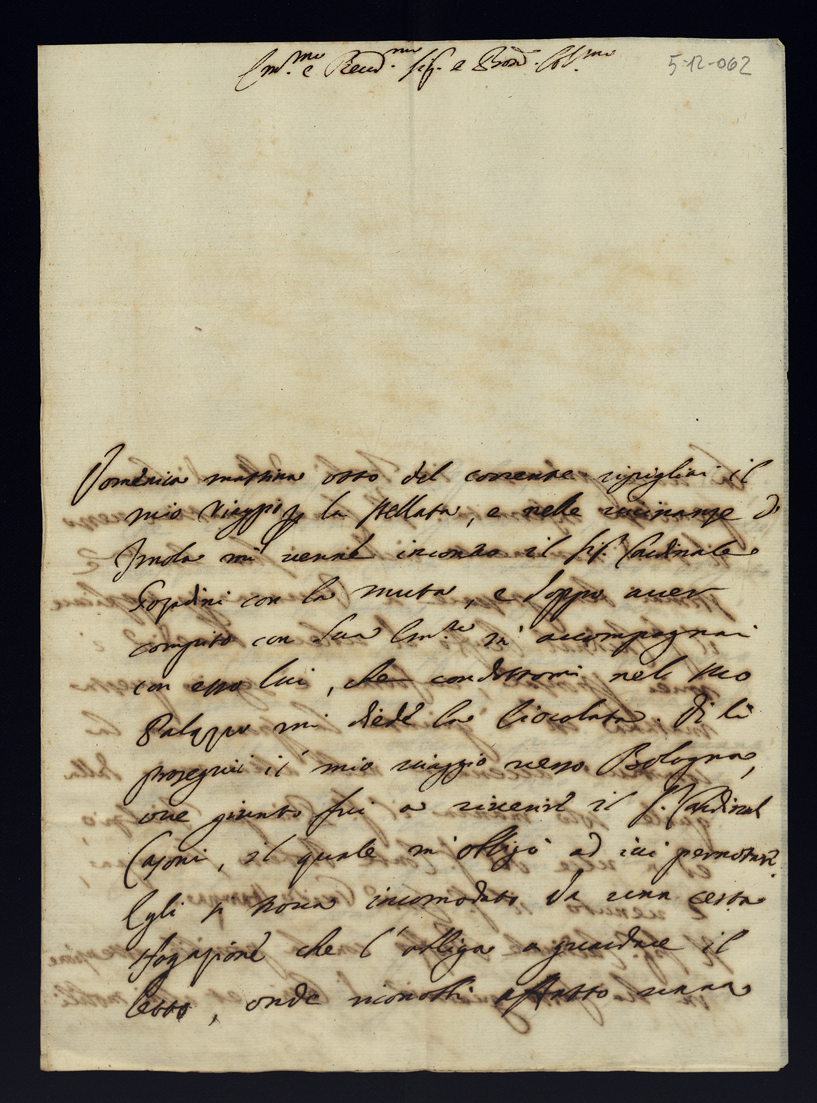 Em.mo e Reud.mo Sig. e Pron. Col.mo
5-12-062
Domenica mattina otto del corrente ripigliai il
mio Viaggio p la stellata, e nelle vicinanze d
Imola mi venne incontro il Sig. Cardinale
Gozadini con la muta, e doppo aver
compito con Sua Em.za m'accompagnai
con esso lui, che condottomi nel suo
Palazzo mi diede la Ciocolata. Di lì
proseguii il mio viaggio verso Bologna,
ove giunto fui a riverire il S. Cardinal
Casoni, il quale m'obligò ad ivi pernottare.
Egli si trova incomodato da una certa
flogazione che l'obliga a guardare il
letto, onde